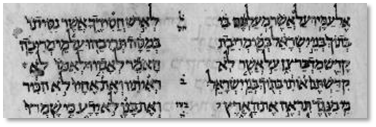 אל עמיו על אשר מעלתם בי
בתוך בני ישראל במי מריבת
קדש מדבר צן על אשר לא
קדשתם אותי בתוך בני ישראל
כי מנגד תראה את הארץ
לאיש חסידך אשר נסיתו
במסה תריבהו על מי מריבה
האמר לאביו ולאמו לא
ראיתיו ואת אחיו לא הכיר
ואת בנו לא ידע כי שמרו